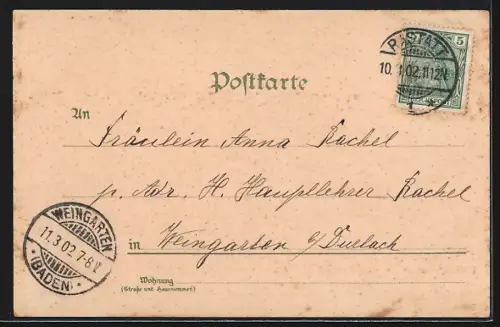 Postkarte
RASTATT
5
10. 02. 11-12V.
1
An
Fräulein Anna Rachel
p. Adr. H. Hauptlehrer Rachel
in Weingarten b/Durlach
WEINGARTEN
11.3.02.7-8V.
(BADEN)
Wohnung
(Straße und Hausnummer)